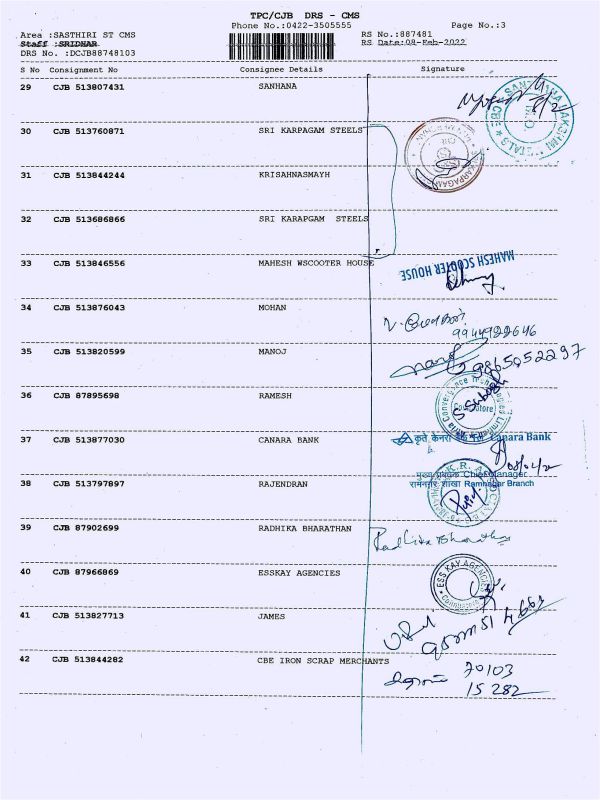 TPC/CJB DRS - CMS
Phone No.:0422-3505555 Page No.:3
Area :SASTHIRI ST CMS RS No.:887481
Staff :SRIDHAR RS Date:08-Feb-2022
DRS No. :DCJB88748103
S No Consignment No Consignee Details Signature
29 CJB 513807431 SANHANA
30 CJB 513760871 SRI KARPAGAM STEELS
31 CJB 513844244 KRISAHNASMAYH
32 CJB 513686866 SRI KARAPGAM STEELS
33 CJB 513846556 MAHESH WSCOOTER HOUSE
MAHESH SCOOTER HOUSE
34 CJB 513876043 MOHAN
9944922646
35 CJB 513820599 MANOJ
9865052297
36 CJB 87895698 RAMESH
Coimbatore
37 CJB 513877030 CANARA BANK
Canara Bank
मुख्य प्रबंधक Chief Manager
रामनगर शाखा Ramnagar Branch
38 CJB 513797897 RAJENDRAN
39 CJB 87902699 RADHIKA BHARATHAN
Radhika Bharathan
40 CJB 87966869 ESSKAY AGENCIES
ESS KAY AGENCIES
41 CJB 513827713 JAMES
42 CJB 513844282 CBE IRON SCRAP MERCHANTS
70103
15282